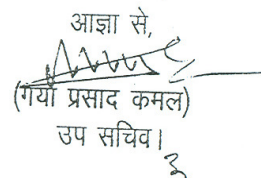 आज्ञा से,
(गया प्रसाद कमल)
उप सचिव।